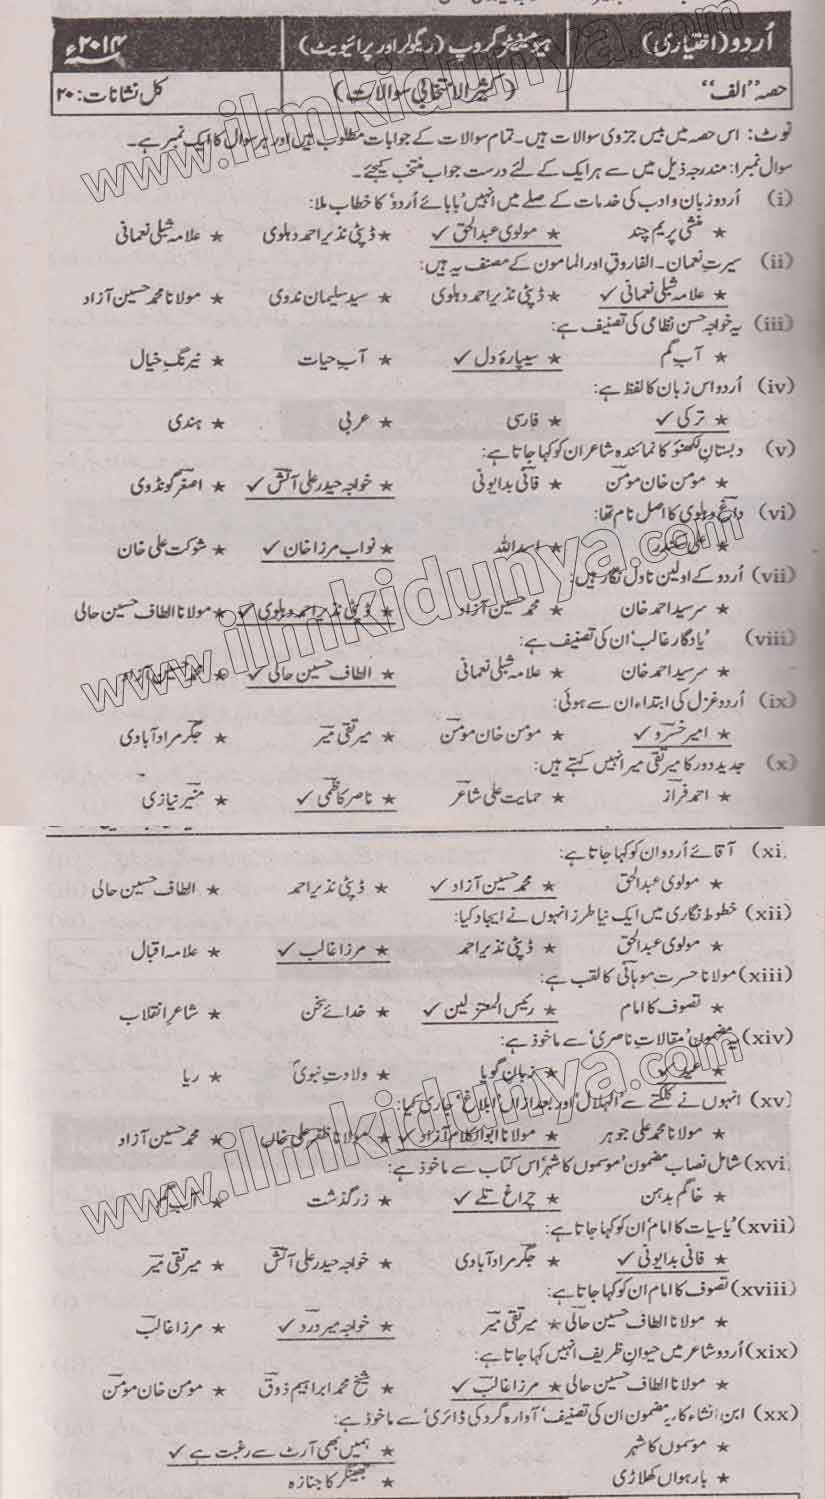 اُردو (اختیاری) ہیومینٹیز گروپ (ریگولر اور پرائیویٹ) ۲۰۱۴ء
حصہ "الف" (کثیر الانتخابی سوالات) کل نشانات: ۲۰
نوٹ: اس حصہ میں بیس جزوی سوالات ہیں۔ تمام سوالات کے جوابات مطلوب ہیں اور ہر سوال کا ایک نمبر ہے۔
سوال نمبر۱: مندرجہ ذیل میں سے ہر ایک کے لئے درست جواب منتخب کیجئے۔
(i) اُردو زبان و ادب کی خدمات کے صلے میں انہیں 'بابائے اُردو' کا خطاب ملا:
★ منشی پریم چند ★ مولوی عبدالحق ✓ ★ ڈپٹی نذیر احمد دہلوی ★ علامہ شبلی نعمانی
(ii) سیرتِ نعمان۔ الفاروق اور المامون کے مصنف یہ ہیں:
★ علامہ شبلی نعمانی ✓ ★ ڈپٹی نذیر احمد دہلوی ★ سید سلیمان ندوی ★ مولانا محمد حسین آزاد
(iii) یہ خواجہ حسن نظامی کی تصنیف ہے:
★ آبِ گم ★ سیپارۂ دل ✓ ★ آبِ حیات ★ نیرنگِ خیال
(iv) اُردو اس زبان کا لفظ ہے:
★ ترکی ✓ ★ فارسی ★ عربی ★ ہندی
(v) دبستانِ لکھنؤ کا نمائندہ شاعر ان کو کہا جاتا ہے:
★ مومن خان مومن ★ فانی بدایونی ★ خواجہ حیدر علی آتش ✓ ★ اصغر گونڈوی
(vi) داغ دہلوی کا اصل نام تھا:
★ علی سکندر ★ اسد اللہ ★ نواب مرزا خان ✓ ★ شوکت علی خان
(vii) اُردو کے اولین ناول نگار ہیں:
★ سرسید احمد خان ★ محمد حسین آزاد ★ ڈپٹی نذیر احمد دہلوی ✓ ★ مولانا الطاف حسین حالی
(viii) 'یادگارِ غالب' ان کی تصنیف ہے:
★ سرسید احمد خان ★ علامہ شبلی نعمانی ★ الطاف حسین حالی ✓ ★ محمد حسین آزاد
(ix) اُردو غزل کی ابتداء ان سے ہوئی:
★ امیر خسرو ✓ ★ مومن خان مومن ★ میر تقی میر ★ جگر مراد آبادی
(x) جدید دور کا میر تقی میر انہیں کہتے ہیں:
★ احمد فراز ★ حمایت علی شاعر ★ ناصر کاظمی ✓ ★ منیر نیازی
(xi) آقائے اُردو ان کو کہا جاتا ہے:
★ مولوی عبدالحق ★ محمد حسین آزاد ✓ ★ ڈپٹی نذیر احمد ★ الطاف حسین حالی
(xii) خطوط نگاری میں ایک نیا طرز انہوں نے ایجاد کیا:
★ مولوی عبدالحق ★ ڈپٹی نذیر احمد ★ مرزا غالب ✓ ★ علامہ اقبال
(xiii) مولانا حسرت موہانی کا لقب ہے:
★ تصوف کا امام ★ رئیس المتغزلین ✓ ★ خدائے سخن ★ شاعرِ انقلاب
(xiv) یہ مضمون 'مقالاتِ ناصری' سے ماخوذ ہے:
★ عید ✓ ★ زبانِ گویا ★ ولادتِ نبویؐ ★ ریا
(xv) انہوں نے کلکتے سے 'الہلال' اور بعد ازاں 'ابلاغ' جاری کیا:
★ مولانا محمد علی جوہر ★ مولانا ابوالکلام آزاد ✓ ★ مولانا ظفر علی خاں ★ محمد حسین آزاد
(xvi) شامل نصاب مضمون 'موسموں کا شہر' اس کتاب سے ماخوذ ہے:
★ خاکم بدہن ★ چراغ تلے ✓ ★ زرگذشت ★ آبِ گم
(xvii) 'یاسیات کا امام' ان کو کہا جاتا ہے:
★ فانی بدایونی ✓ ★ جگر مراد آبادی ★ خواجہ حیدر علی آتش ★ میر تقی میر
(xviii) تصوف کا امام ان کو کہا جاتا ہے:
★ مولانا الطاف حسین حالی ★ میر تقی میر ★ خواجہ میر درد ✓ ★ مرزا غالب
(xix) اُردو شاعر میں حیوانِ ظریف انہیں کہا جاتا ہے:
★ مولانا الطاف حسین حالی ★ مرزا غالب ✓ ★ شیخ محمد ابراہیم ذوق ★ مومن خان مومن
(xx) ابن انشاء کا یہ مضمون ان کی تصنیف 'آوارہ گرد کی ڈائری' سے ماخوذ ہے:
★ موسموں کا شہر ★ ہمیں بھی آرٹ سے رغبت ہے ✓
★ بارہواں کھلاڑی ★ جھینگر کا جنازہ
www.ilmkidunya.com
www.ilmkidunya.com
www.ilmkidunya.com